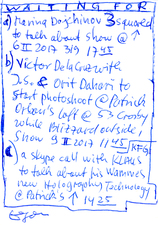 WAITING FOR
a) Marina Dojchinov 3squared
to talk about show @ ↑
6 II 2017 319 1745
b) Victor DelaCruz with
I.S. & Orit Dahari to
start photoshoot @ Patrick
loft @ 53 Crosby
while Blizzard outside,
Show 9 II 2017 1145 KFG
c) a skype call with KLAUS
to talk about his Wamnes
new Holography Technology
@ Patrick's ↑ 1425